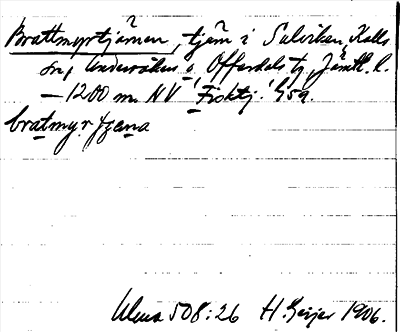 Brattmyrtjärnen, tjärn i Sulviken, Kalls
sn, Undersåkers o. Offerdals tg, Jämtl. l.
— 1200 m NV Fisktj. G59.
bratmyr tjɛna
Ulma 508:26 H. Geijer 1906.